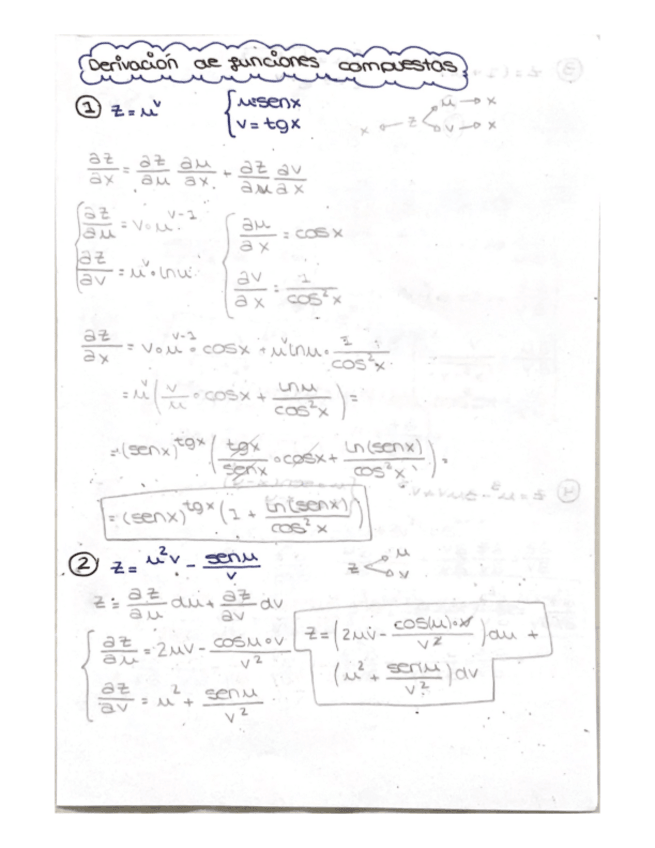 Derivación de funciones compuestas
① z = u^v { u = senx
v = tgx
x z u x
v x
∂z/∂x = ∂z/∂u ∂u/∂x + ∂z/∂u ∂v/∂x
{ ∂z/∂u = v·u^(v-1) { ∂u/∂x = cosx
∂z/∂v = u^v·lnu ∂v/∂x = 1/cos²x
∂z/∂x = v·u^(v-1)·cosx + u^v lnu·1/cos²x
= u^v (v/u·cosx + lnu/cos²x) =
= (senx)^tgx (tgx/senx·cosx + ln(senx)/cos²x) =
= (senx)^tgx (1 + ln(senx)/cos²x)
② z = u²v - senu/v z u
v
z = ∂z/∂u du + ∂z/∂v dv
{ ∂z/∂u = 2uv - cosu·v/v²
∂z/∂v = u² + senu/v²
z = (2uv - cos(u)·v/v²) du +
(u² + senu/v²) dv